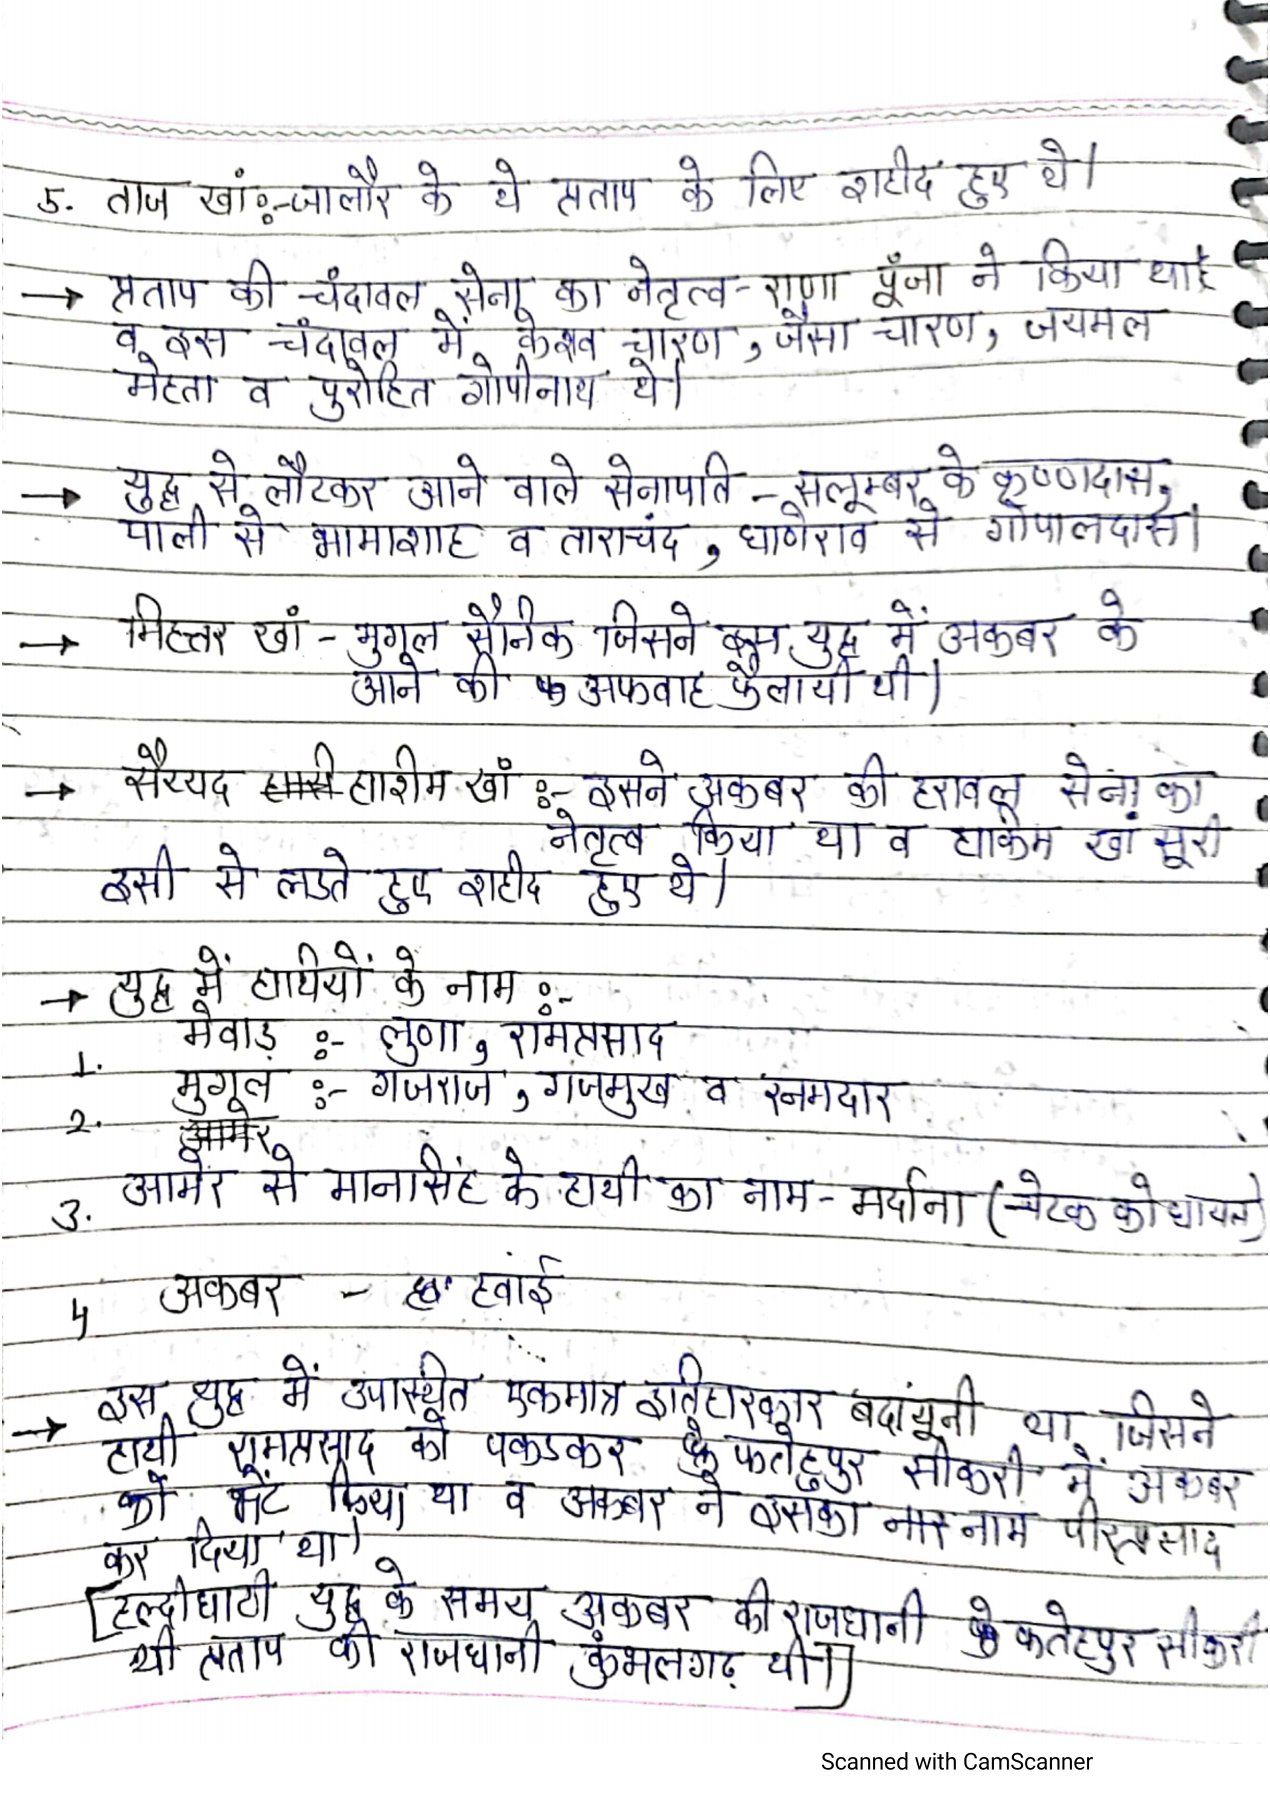 5. ताज खां :- जालौर के थे प्रताप के लिए शहीद हुए थे।
→ प्रताप की चंदावल सेना का नेतृत्व - राणा पूंजा ने किया था
व इस चंदावल में केशव चारण, जैसा चारण, जयमल
मेहता व पुरोहित गोपीनाथ थे।
→ युद्ध से लौटकर आने वाले सेनापति - सलूम्बर के कृष्णदास,
पाली से भामाशाह व ताराचंद, घाणेराव से गोपालदास।
→ मिहत्तर खां - मुगल सैनिक जिसने इस युद्ध में अकबर के
आने की अफवाह फैलायी थी।
→ सैय्यद हाशीम खाँ :- इसने अकबर की हरावल सेना का
नेतृत्व किया था व हाकिम खां सूरी
इसी से लडते हुए शहीद हुए थे।
→ युद्ध में हाथियों के नाम :-
1. मेवाड़ :- लुणा, रामप्रसाद
2. मुगल :- गजराज, गजमुख व रनमदार
आमेर
3. आमेर से मानसिंह के हाथी का नाम - मर्दाना (चेटक को घायल)
4 अकबर - हवाई
→ इस युद्ध में उपस्थित एकमात्र इतिहासकार बदांयूनी था जिसने
हाथी रामप्रसाद को पकडकर फतेहपुर सीकरी में अकबर
को भेंट किया था व अकबर ने इसका नाम पीरप्रसाद
कर दिया था।
[हल्दीघाटी युद्ध के समय अकबर की राजधानी फतेहपुर सीकरी
थी प्रताप की राजधानी कुंभलगढ़ थी।]
Scanned with CamScanner